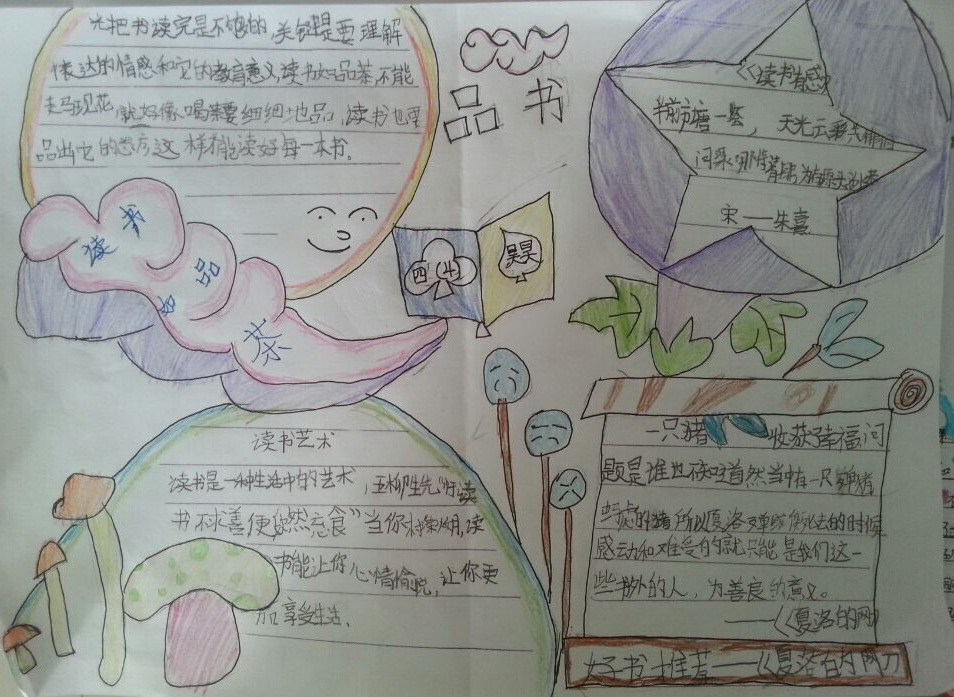 光把书读完是不够的,关键是要理解
表达的情感和它的教育意义,读书如品茶,不能
走马观花,就好像喝茶要细细地品,读书也要
品出它的 这样才能读好每一本书。
品书
读书如品茶
四(4)
吴昊
《读书有感》
半亩方塘一鉴 , 天光云影共徘徊
问渠哪 得 清 为有源头活水
宋——朱熹
读书艺术
读书是一种生活中的艺术,五柳先生“好读
书不求 便 然忘食”当你 时,读
书能让你心情愉悦,让你更
加享受生活、
一只猪 收获了幸福,问
题是谁也不知道自然当中有一只
些 的猪,所以夏洛 的时候
感动和难受有的就只能是我们这一
些书外的人,为善良的意义。
——《夏洛的网》
好书推荐——《夏洛的网》